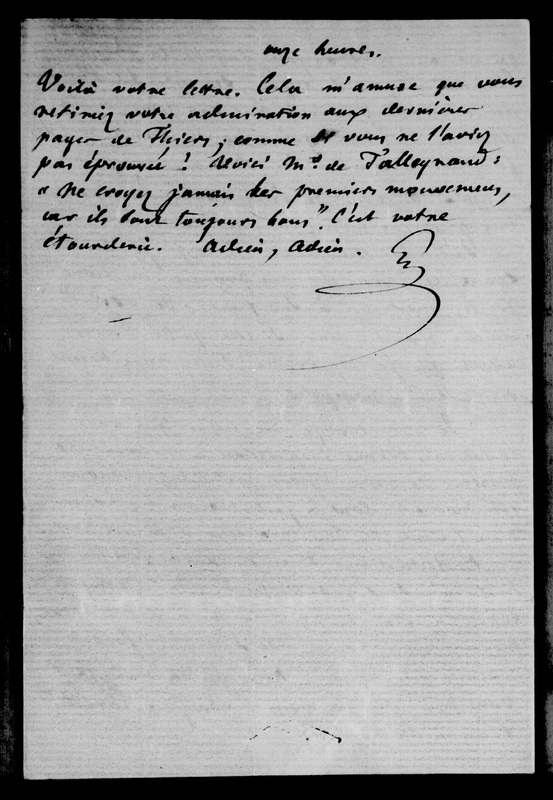 onze heures.
Voilà votre lettre. Cela m'amuse que vous
retiriez votre admiration aux dernières
pages de Thiers; comme si vous ne l'aviez
pas éprouvée! Voici Mr de Talleyrand:
"Ne croyez jamais les premiers mouvemens,
car ils sont toujours bons". C'est votre
étourderie. Adieu, Adieu.